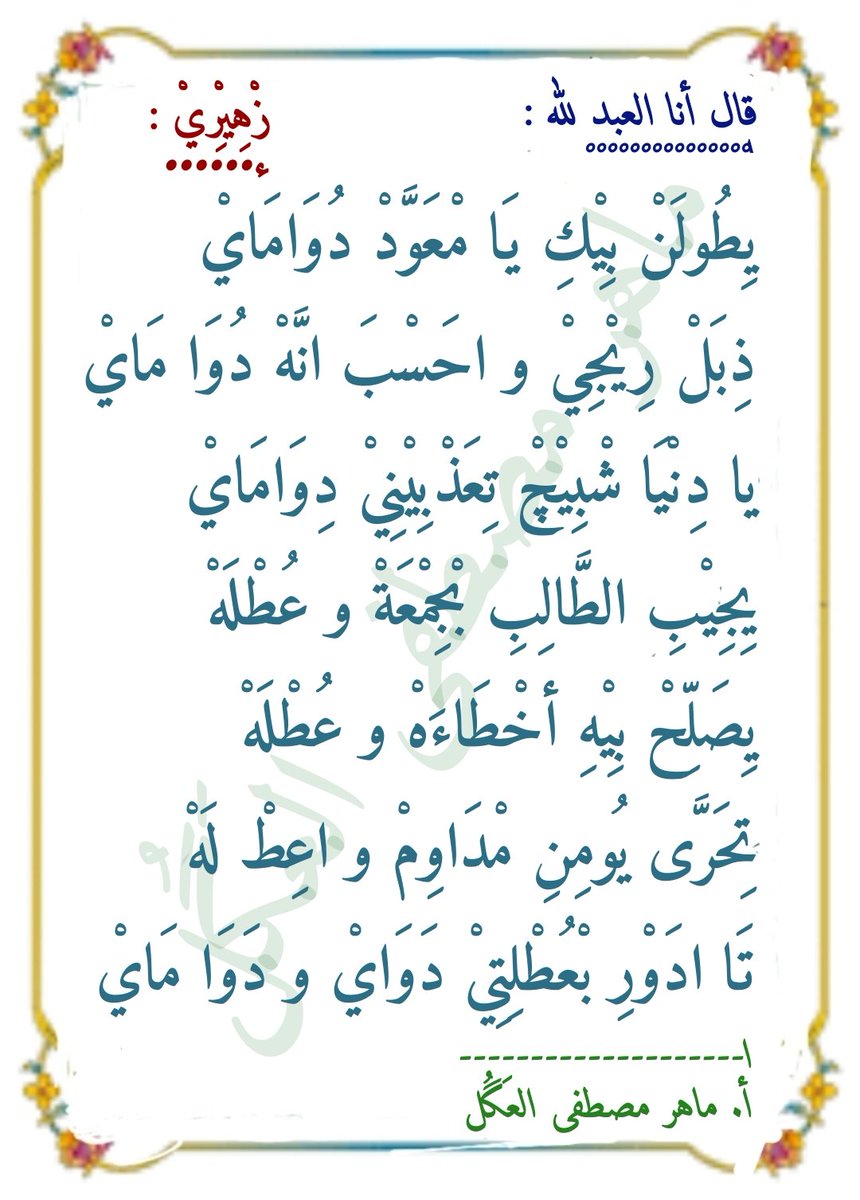 قال أنا العبد لله :
زْهِيْرِيْ :
يِطُولَنْ بِيْكِ يَا مْعَوَّدْ دُوَامَايْ
ذِبَلْ رِيْجِيْ و احَسْبَ انَّهْ دُوَا مَايْ
يا دِنْيَا شْبِيْچْ تِعَذْبِيْنِيْ دِوَامَايْ
يِجِيْبِ الطَّالِبِ بْجِمْعَةْ و عُطْلَهْ
يِصَلّحْ بِيْهِ أخْطَاءَهْ و عُطْلَهْ
تِحَرَّى يُومِنِ مْدَاوِمْ و اعِطْ لَهْ
تَا ادَوْرِ بْعُطْلِتِيْ دَوَايْ و دَوَا مَايْ
أ. ماهر مصطفى العَگُل
ماهر مصطفى العَگُل